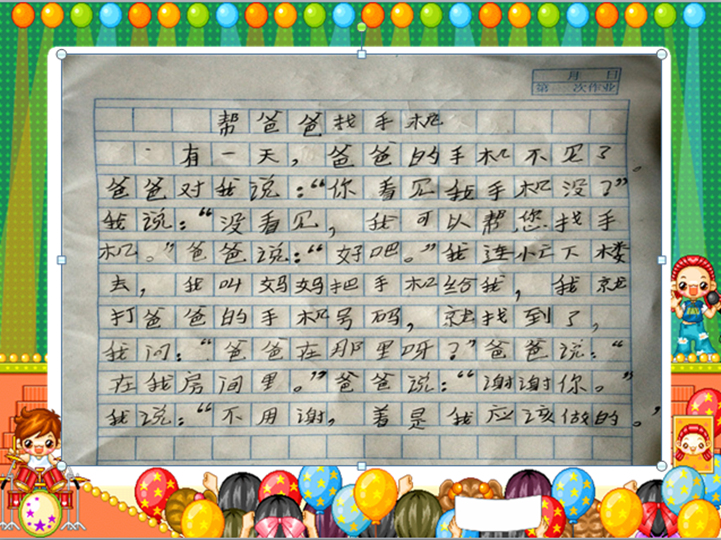 月 日
第 次作业
帮爸爸找手机
有一天，爸爸的手机不见了。
爸爸对我说：“你看见我手机没了”
我说：“没看见，我可以帮您找手
机。”爸爸说：“好吧。”我连忙下楼
去，我叫妈妈把手机给我，我就
打爸爸的手机号码，就找到了，
我问：“爸爸在那里呀？”爸爸说：“
在我房间里。”爸爸说：“谢谢你。”
我说：“不用谢，着是我应该做的。”